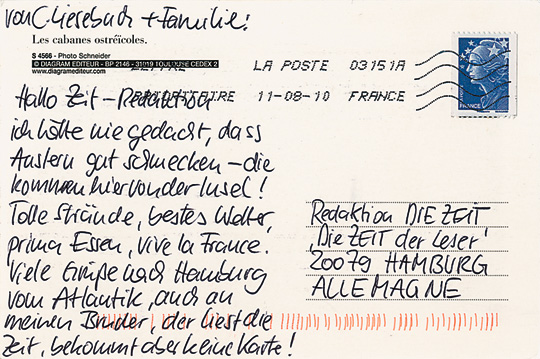 von C. Liesebach + Familie!
Les cabanes ostréicoles.
S 4566 - Photo Schneider
© DIAGRAM EDITEUR - BP 2146 - 31019 TOULOUSE CEDEX 2
www.diagramediteur.com
LETTRE LA POSTE 03151A
PRIORITAIRE 11-08-10 FRANCE
FRANCE
Hallo Zeit-Redaktion
ich hätte nie gedacht, dass
Austern gut schmecken – die
kommen hier von der Insel!
Tolle Strände, bestes Wetter,
prima Essen, vive la France!
Viele Grüße nach Hamburg
vom Atlantik, auch an
meinen Bruder, der liest die
Zeit, bekommt aber keine Karte!
Redaktion DIE ZEIT
'Die ZEIT der Leser'
20079 HAMBURG
ALLEMAGNE